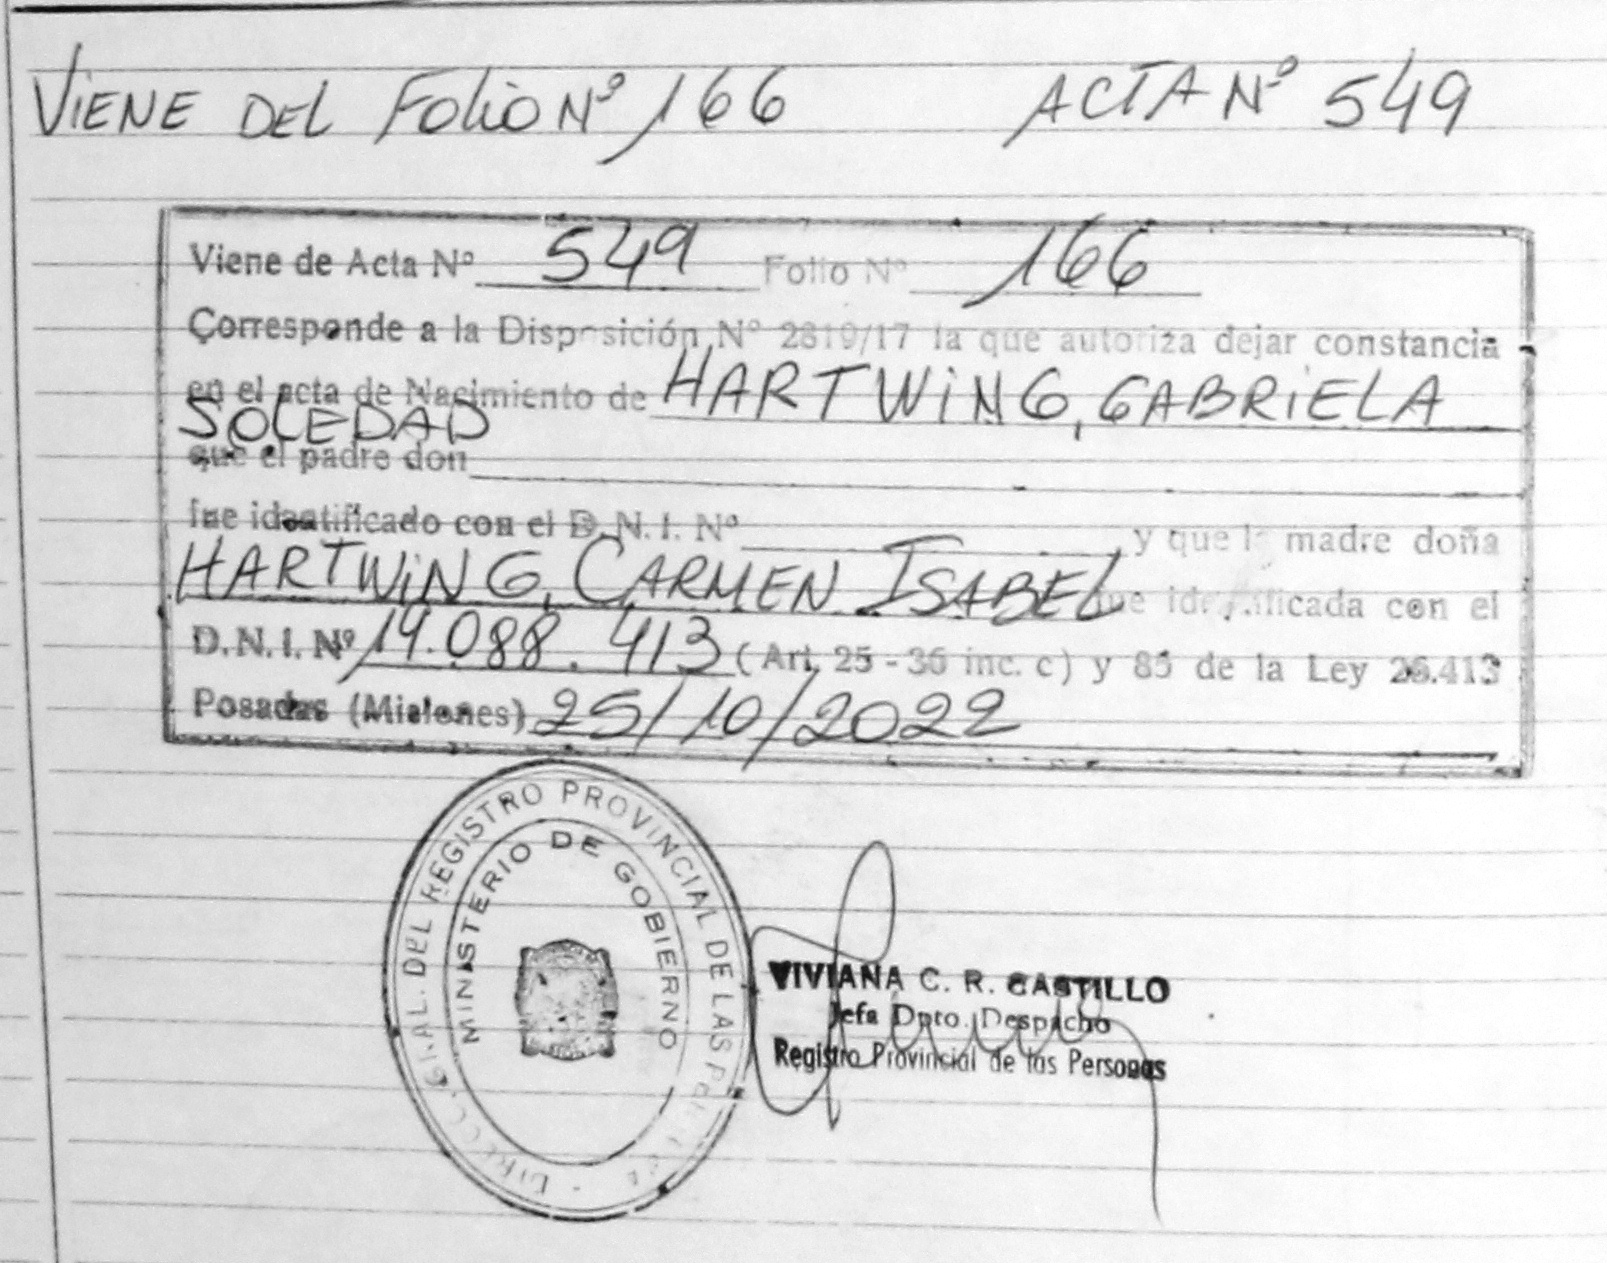 VIENE DEL FOLIO Nº 166 ACTA Nº 549
Viene de Acta Nº 549 Folio Nº 166
Corresponde a la Disposición Nº 2819/17 la que autoriza dejar constancia
en el acta de Nacimiento de HARTWING, GABRIELA
SOLEDAD
que el padre don
fue identificado con el D.N.I. Nº y que la madre doña
HARTWING, CARMEN ISABEL fue identificada con el
D.N.I. Nº 14.088.413 (Art. 25 - 36 inc. c) y 85 de la Ley 26.413
Posadas (Misiones) 25/10/2022
DIRECC. GRAL. DEL REGISTRO PROVINCIAL DE LAS
MINISTERIO DE GOBIERNO
VIVIANA C. R. CASTILLO
Jefa Dpto. Despacho
Registro Provincial de las Personas